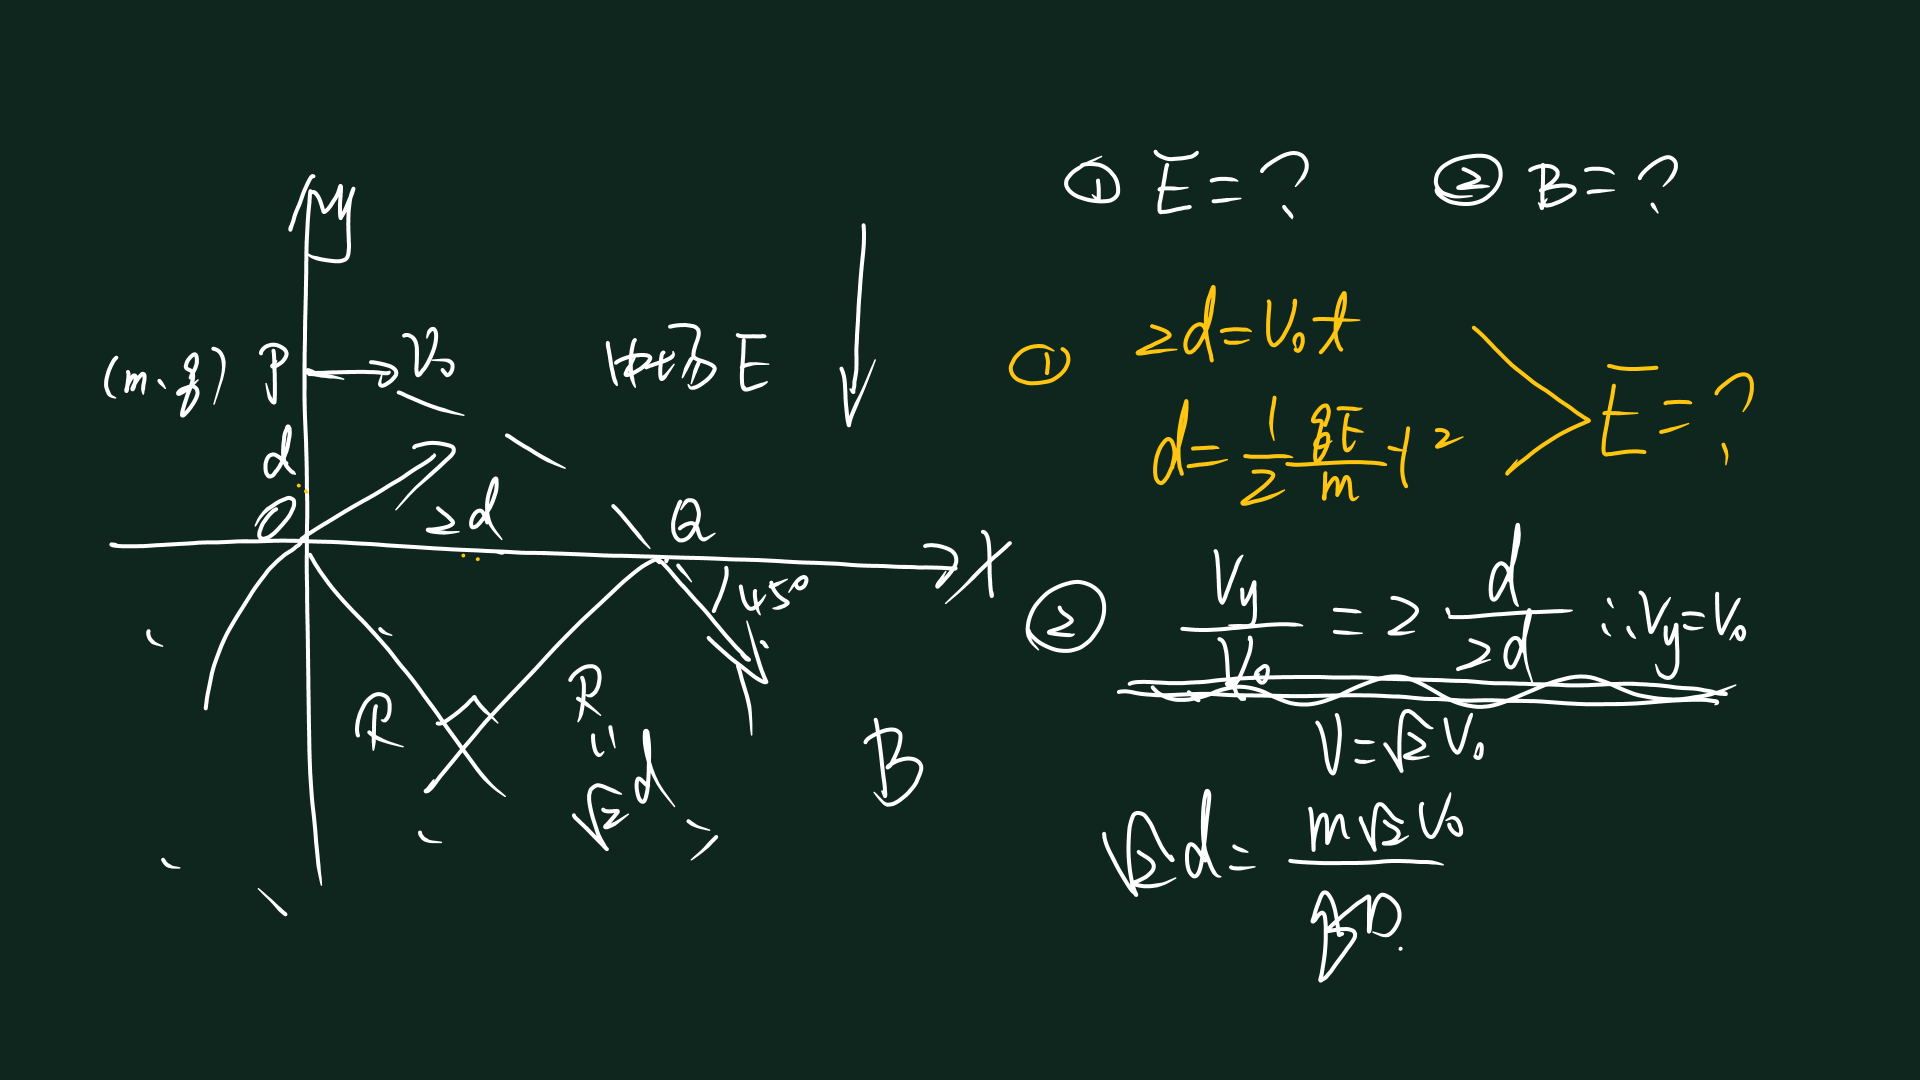 ① E = ? ② B = ?
y
(m、q) P V₀ E
d
O 2d Q X
45°
R R
=
√2 d
B
① 2d = V₀t
d = 1/2 qE/m t² E = ?
② Vy/V₀ = 2 d/2d ∴ Vy = V₀
V = √2 V₀
√2 d = m√2 V₀/qB